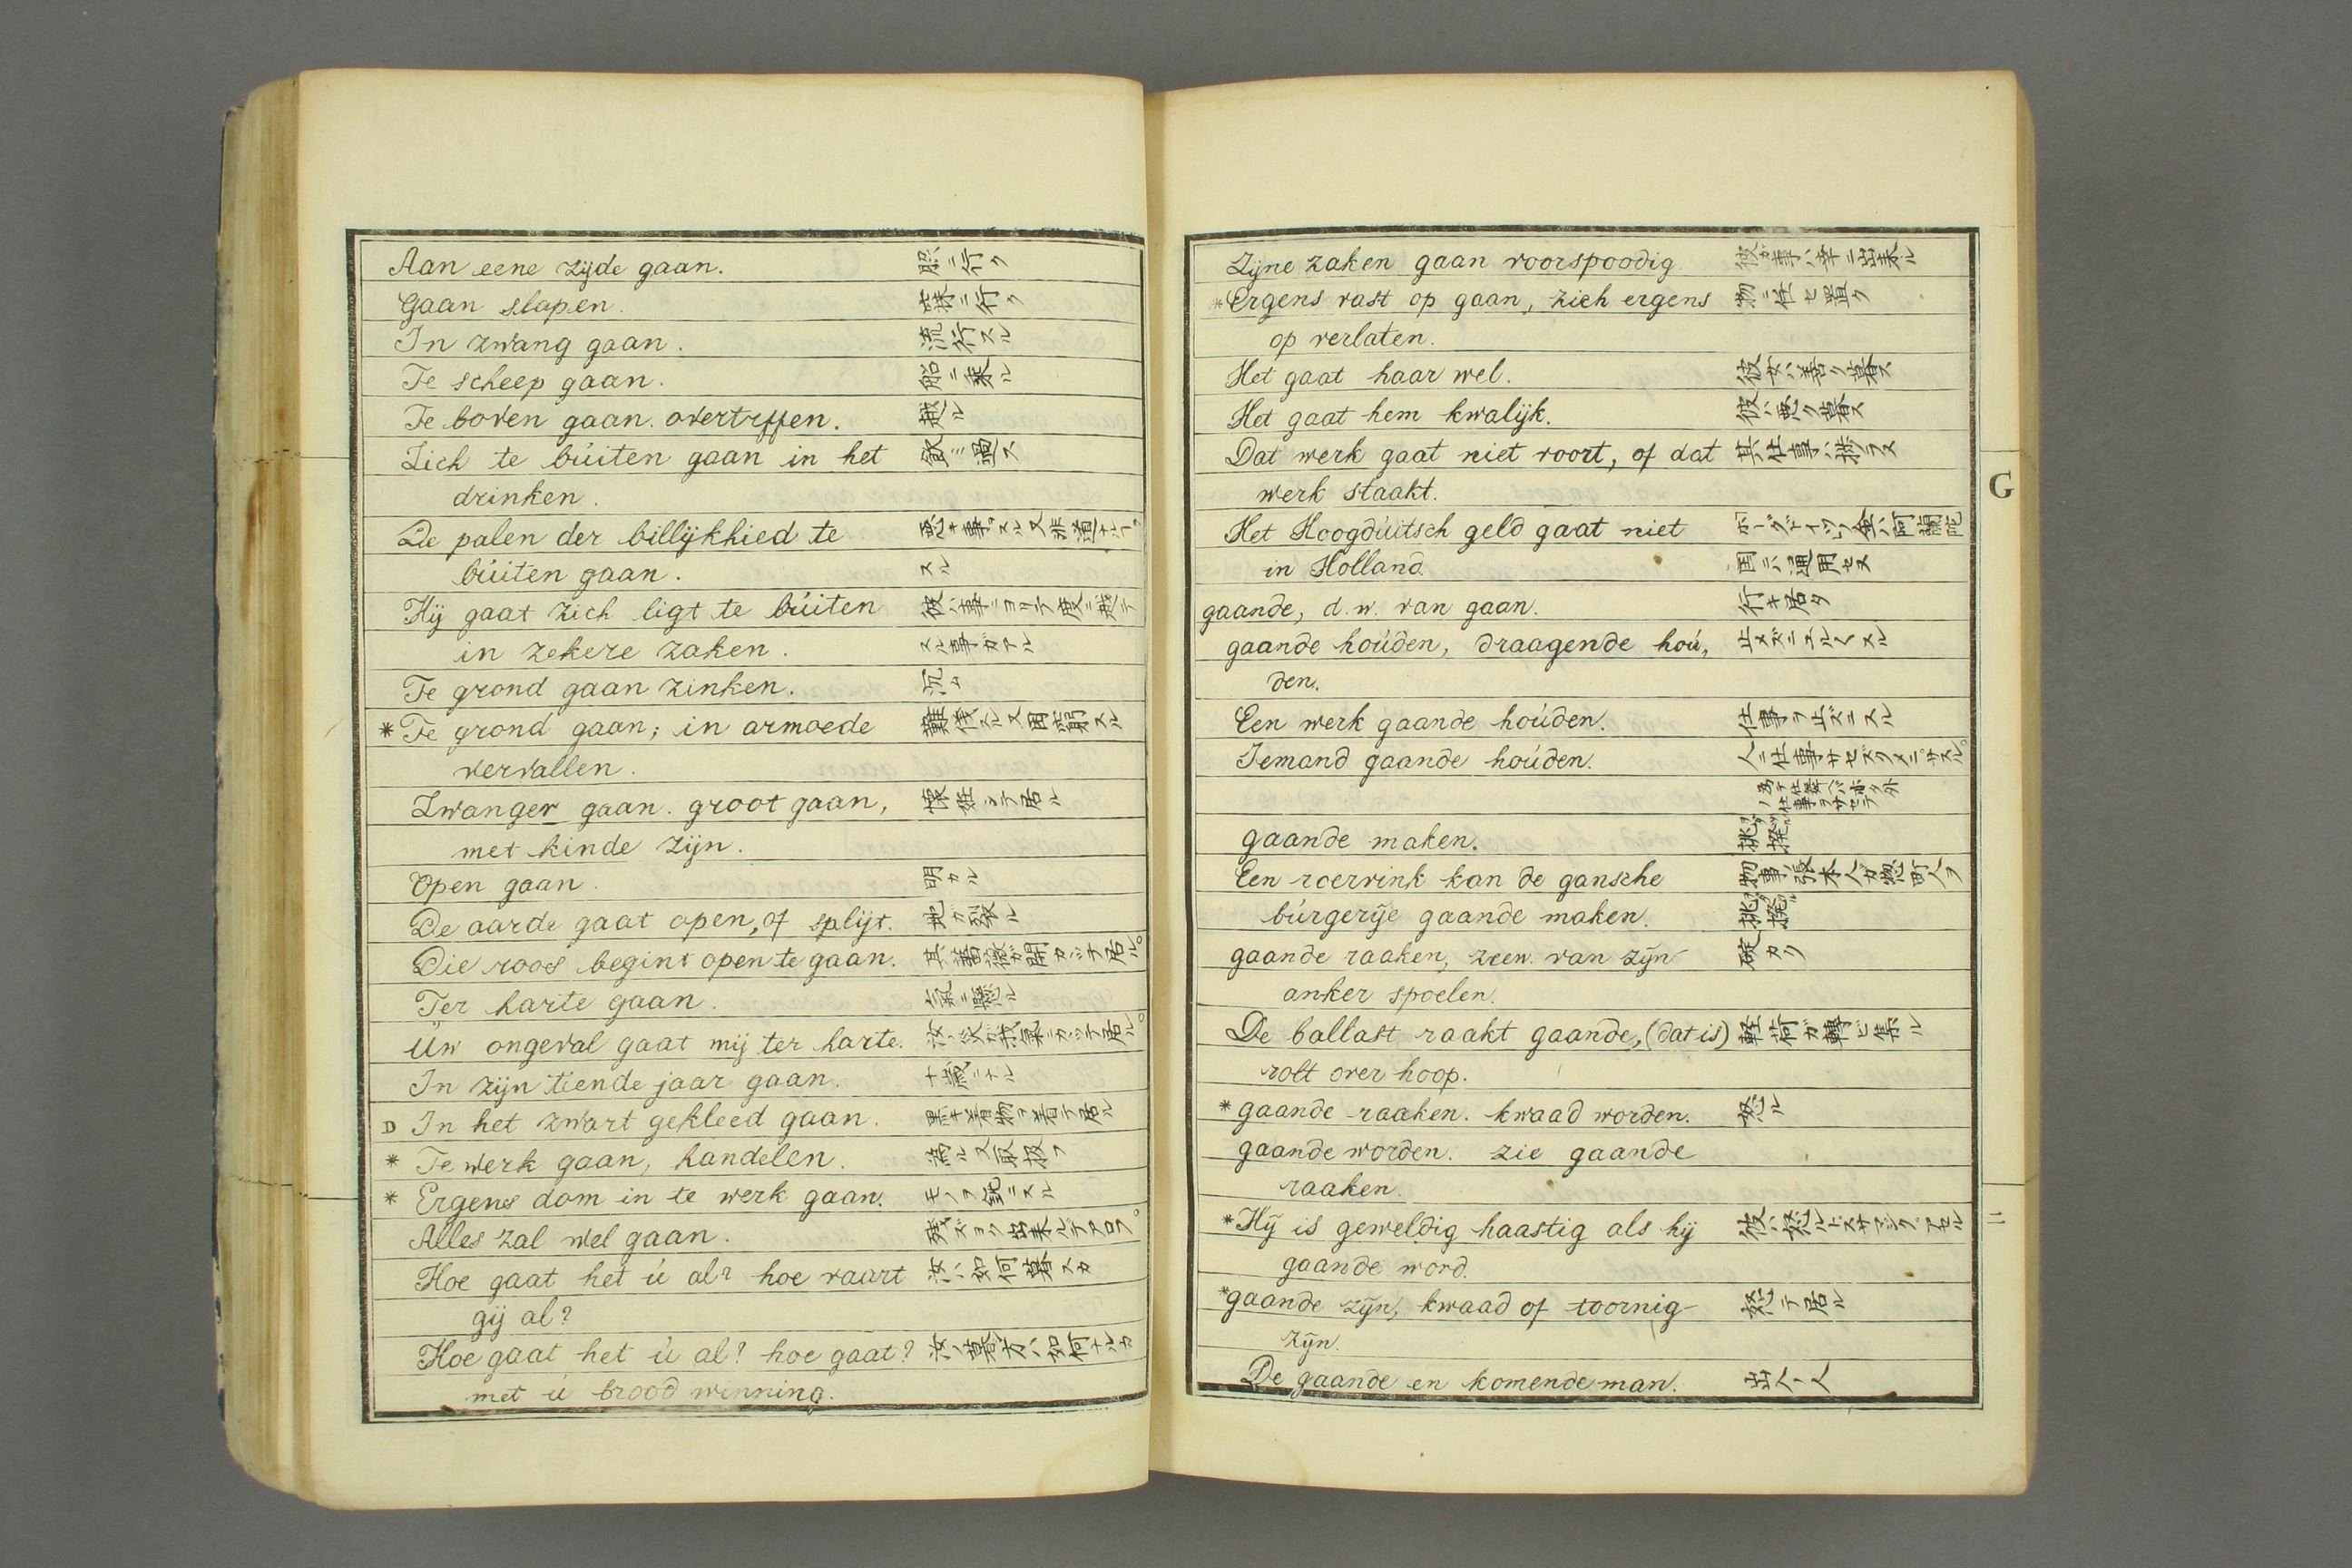 Aan eene zijde gaan. 照ニ行ク
Gaan slapen. 寐ニ行ク
In zwang gaan. 流行スル
Te scheep gaan. 船ニ乗ル
Te boven gaan. overtreffen. 越ル
Zich te búiten gaan in het 飲ミ過ス
drinken.
De palen der billijkhied te 悪キ事ヲスル又非道ナルヿ
búiten gaan. スル
Hij gaat zich ligt te búiten 彼ハ事ニヨリテ度ニ越テ
in zekere zaken. スル事ガアル
Te grond gaan zinken. 沉ム
* Te grond gaan; in armoede 難伐スル又困窮スル
vervallen.
Zwanger gaan. groot gaan, 懐姙シテ居ル
met kinde zijn.
Open gaan. 明カル
De aarde gaat open, of splijt. 地ガ裂ル
Die roos begint open te gaan. 其薔薇ガ開カツテ居ル。
Ter harte gaan. 氣ニ懸ル
Uw ongeval gaat mij ter harte. 汝ノ災ガ我氣ニカツテ居ル。
In zijn tiende jaar gaan. 十歳ニナル
D In het zwart gekleed gaan. 黒キ着物ヲ着テ居ル
* Te werk gaan, handelen. 為ル又取扱フ
* Ergens dom in te werk gaan. モノヲ鈍ニスル
Alles zal wel gaan. 残ズヨク出来ルデアロフ。
Hoe gaat het ú al? hoe vaart 汝ハ如何暮スカ
gij al?
Hoe gaat het ú al? hoe gaat? 汝ノ暮方ハ如何ナルカ
met ú brood winning.
Zijne zaken gaan voorspoodig. 彼ガ事ハ幸ニ出来ル
* Ergens vast op gaan, zich ergens 物ニ任セ置ク
op verlaten.
Het gaat haar wel. 彼女ハ善ク暮ス
Het gaat hem kwalijk. 彼ハ悪ク暮ス
Dat werk gaat niet voort, of dat 其仕事ハ捗ラヌ
werk staakt.
Het Hoogdúitsch geld gaat niet ホーグドイツノ金ハ阿蘭陀
in Holland. 国ニハ通用セヌ
G
gaande, d. w. van gaan. 行キ居タ
gaande hoúden, draagende hoú, 止メズニスル
den.
Een werk gaande hoúden. 仕事ヲ止ズニスル
Iemand gaande hoúden. 人ニ仕事サセズクメニサスル。
gaande maken. 挑撥
Een roervink kan de gansche 物事ノ張本人ガ惣町人ヲ
búrgerije gaande maken. 挑撥
gaande raaken, zeew. van zijn 碇カリ
anker spoelen.
De ballast raakt gaande, (dat is) 軽荷ガ轉ビ集ル
rolt over hoop.
* gaande raaken. kwaad worden. 怒ル
gaande worden. zie gaande
raaken.
* Hij is geweldig haastig als hij 彼ハ怒ルトスサマジクアセル
gaande word.
* gaande zijn, kwaad of toornig 怒テ居ル
zijn.
De gaande en komende man. 出入ノ人
二